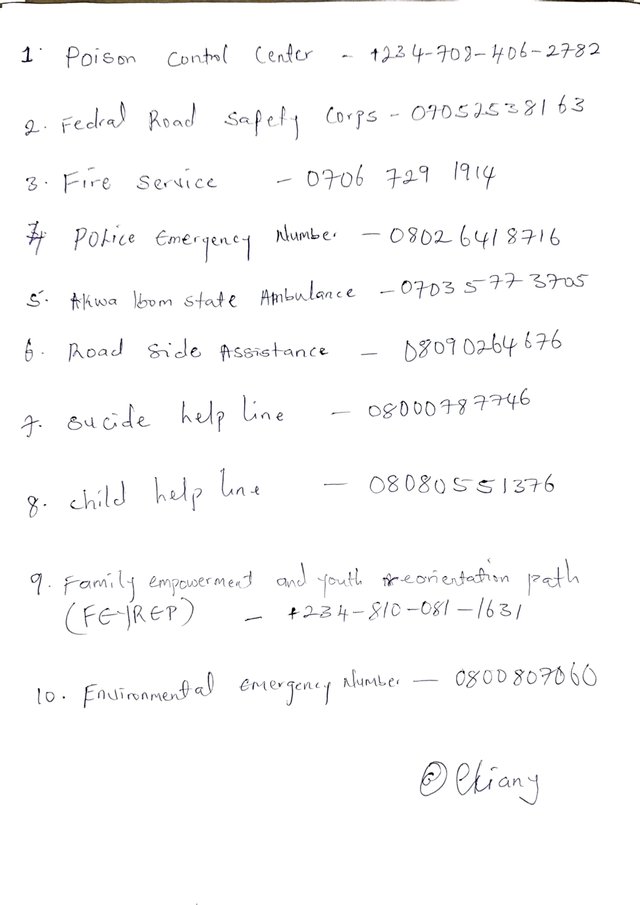 1. Poison Control Center - +234-708-406-2782
2. Fedral Road Safety Corps - 07052538163
3. Fire Service - 0706 729 1914
4 Police Emergency Number - 08026418716
5. Akwa Ibom State Ambulance - 07035773705
6. Road Side Assistance - 08090264676
7. Sucide help line - 08000787746
8. child help line - 08080551376
9. Family empowerment and youth reorientation path
(FEYREP) - +234-810-081-1631
10. Environmental emergency Number - 0800807060
@ Ekiany